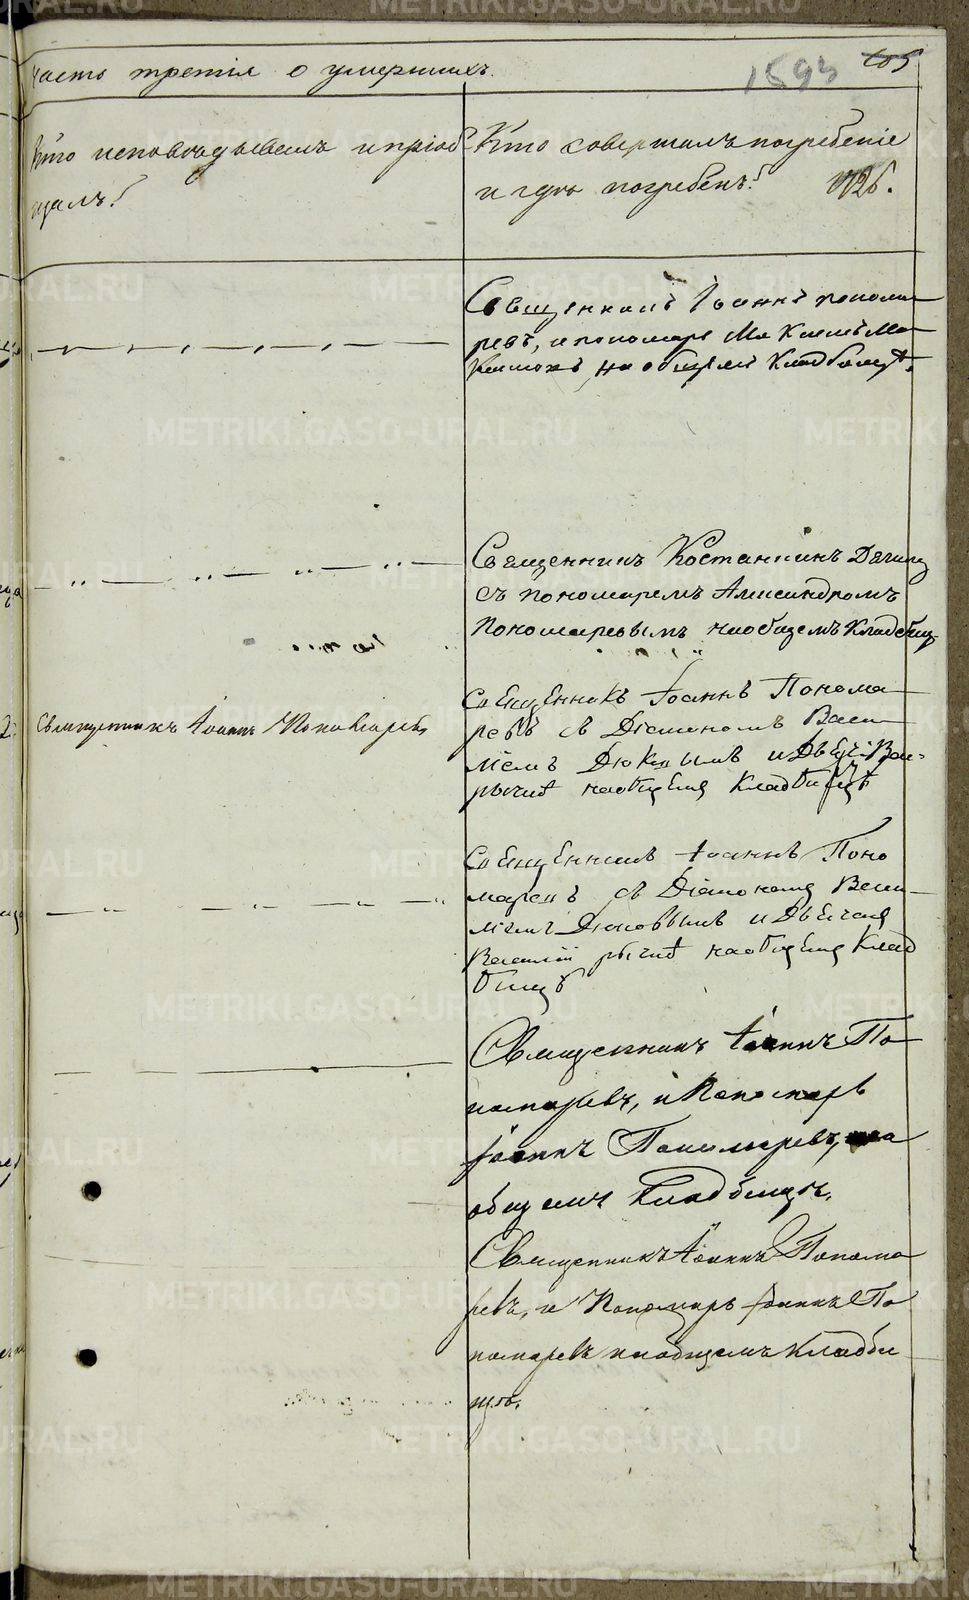 часть третія о умершихъ.
1593 105
Кто исповѣдывалъ и пріоб-
щалъ?
Кто совершалъ погребеніе
и гдѣ погребенъ?
Священникъ Іоаннъ Понома
ревъ, и пономарь
на общемъ кладбищѣ.
Священникъ Костантинъ
съ пономаремъ Александромъ
Пономаревымъ на общемъ кладбищ
Священникъ Іоаннъ Пономаревъ
Священникъ Іоаннъ Понома
ревъ съ Діакономъ Васи
ліемъ
на общемъ кладбищѣ
Священникъ Іоаннъ Поно
маревъ съ Діакономъ Васи
ліемъ
на общемъ клад
бищѣ
Священникъ Іоаннъ По
номаревъ, и Пономарь
Іоаннъ Пономаревъ, на
общемъ кладбищѣ.
Священникъ Іоаннъ Понома
ревъ, и Пономарь Іоаннъ По
номаревъ на общемъ кладби
щѣ.
METRIKI.GASO-URAL.RU